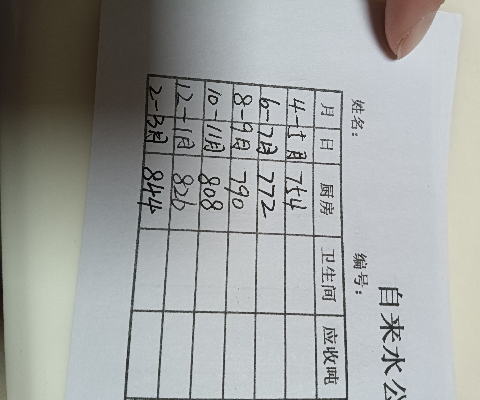 自来水公
姓名： 编号：
月 日 厨房 卫生间 应收吨
4-5月 754
6-7月 772
8-9月 790
10-11月 808
12-1月 826
2-3月 844